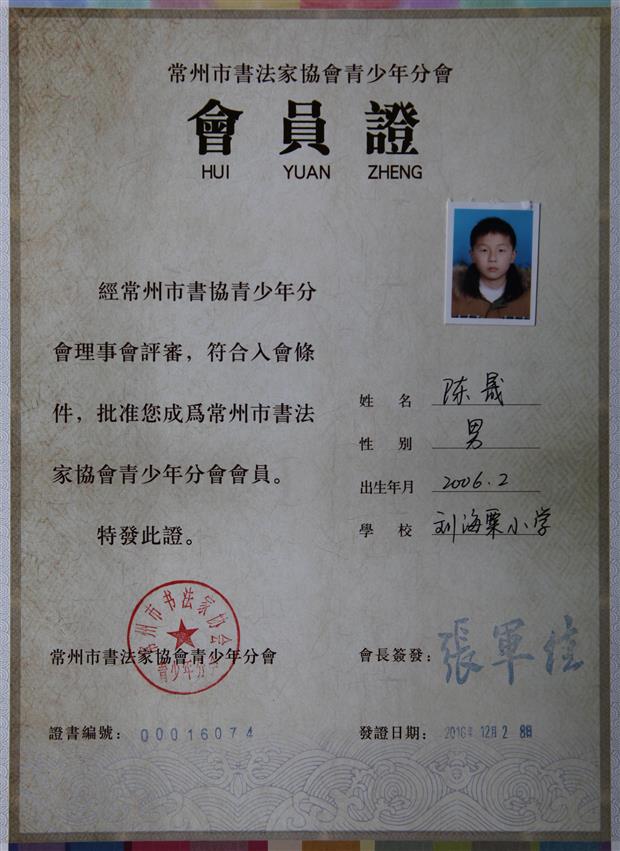 常州市書法家協會青少年分會
會員證
HUI YUAN ZHENG
經常州市書協青少年分
會理事會評審，符合入會條
件，批准您成爲常州市書法
家協會青少年分會會員。
特發此證。
姓 名 陈晟
性 別 男
出生年月 2006.2
學 校 刘海粟小学
常州市书法家协会
青少年分会
常州市書法家協會青少年分會
會長簽發：張軍
證書編號：00016074
發證日期：2016年12月28日